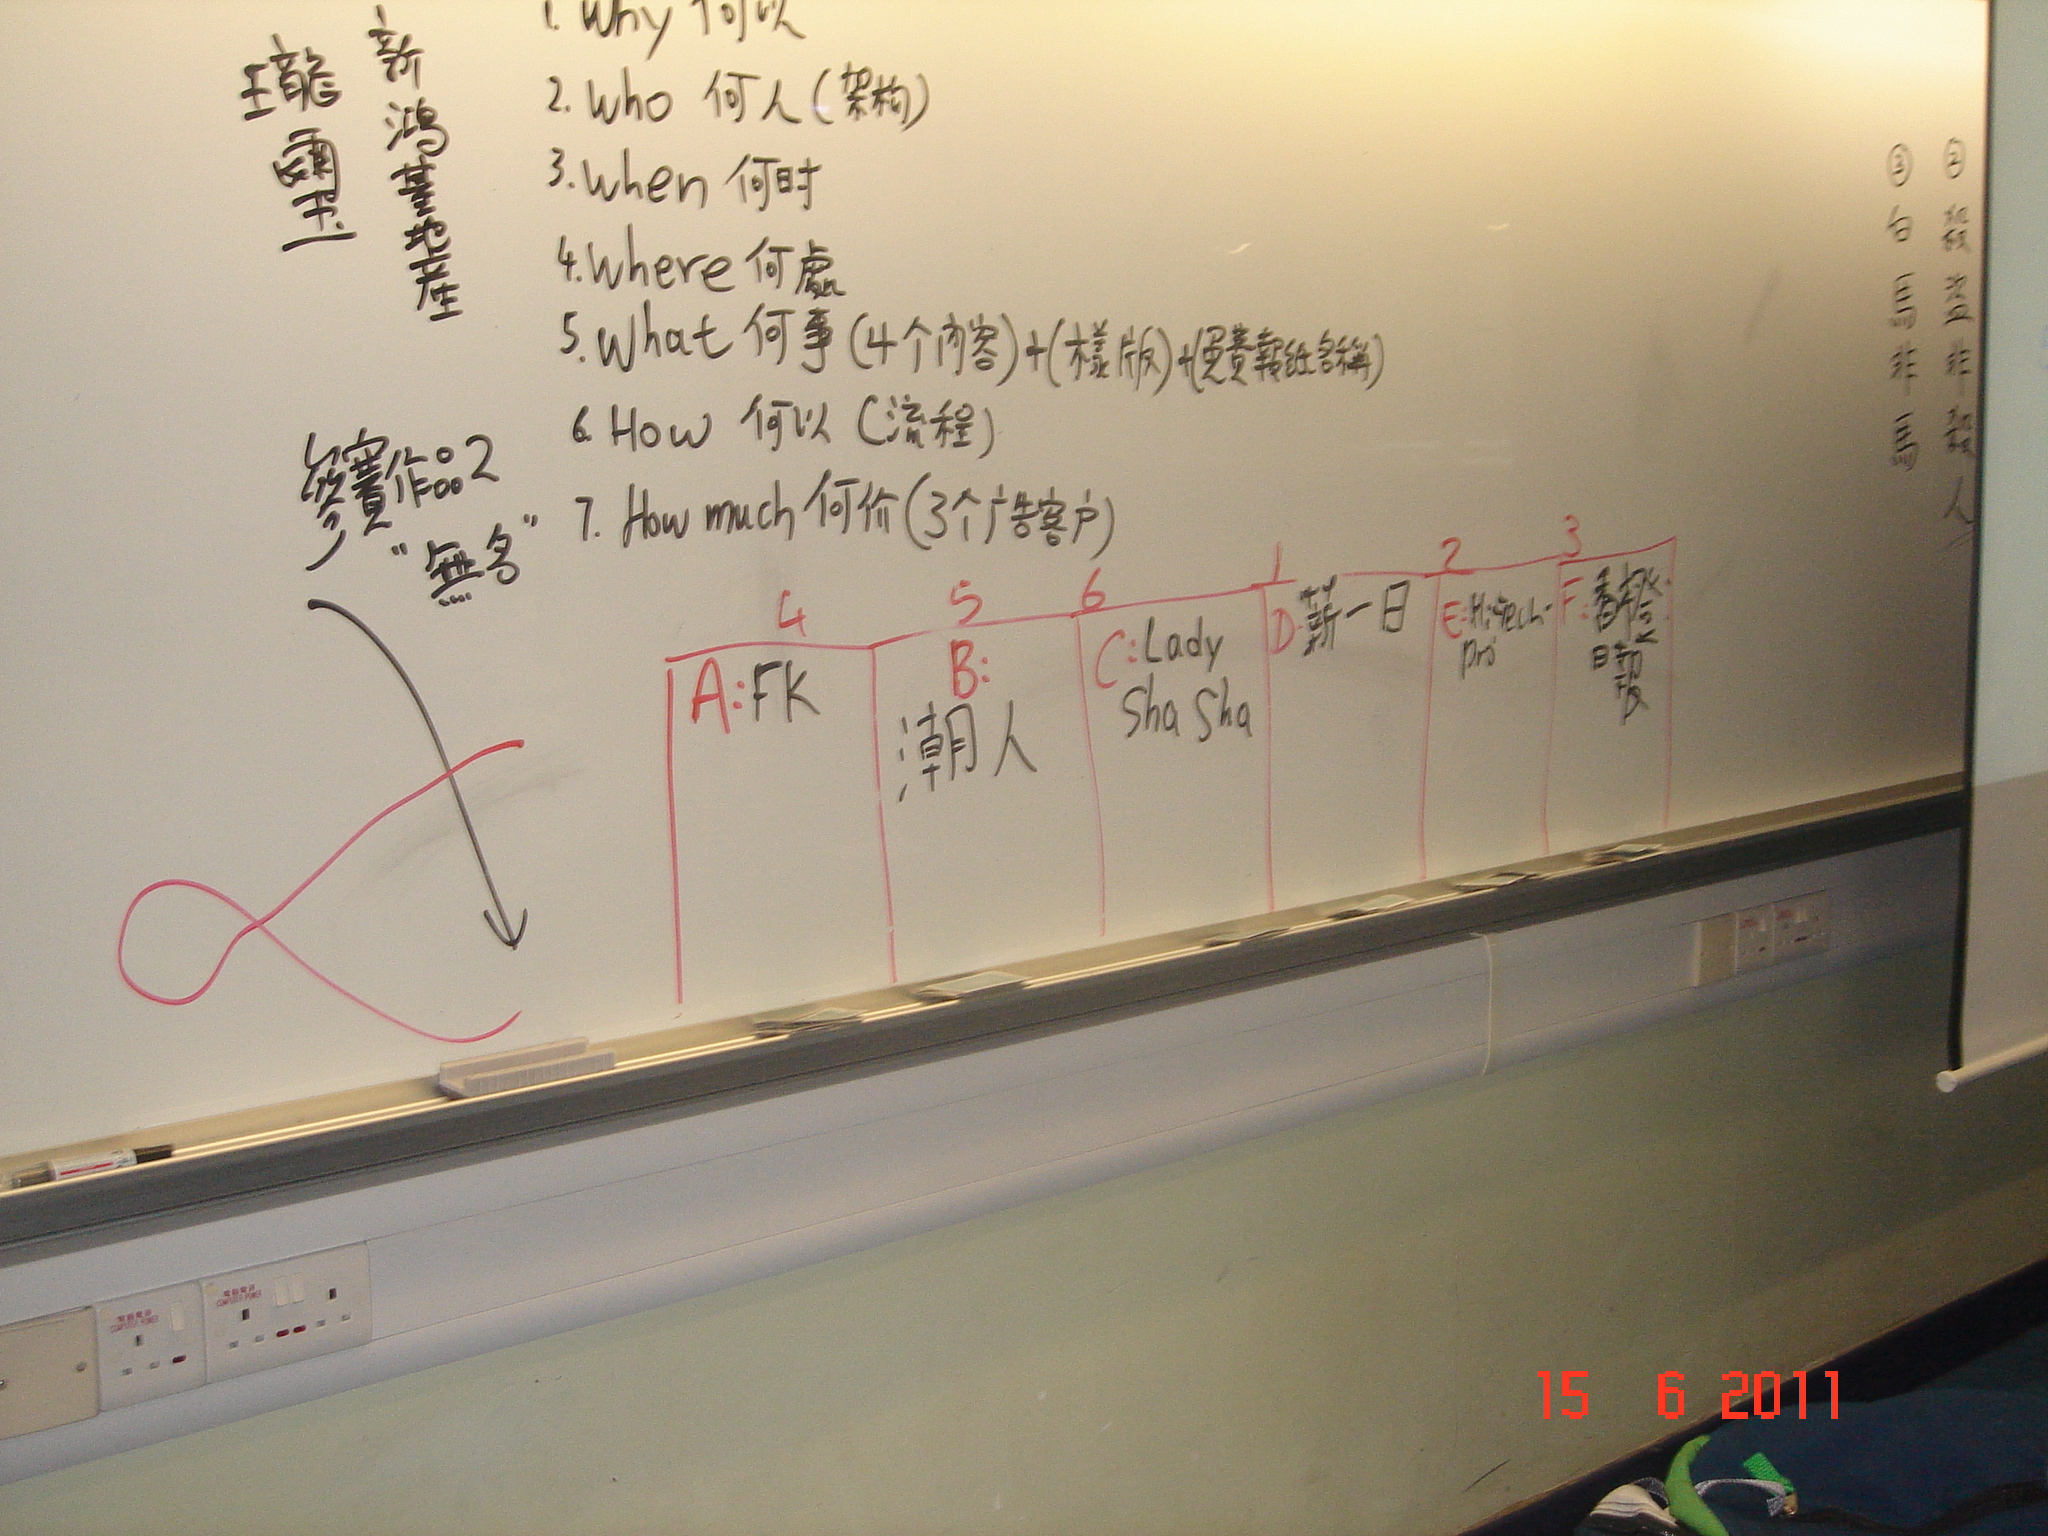 瓏璽
新鴻基地產
1. Why 何以
2. Who 何人(架构)
3. When 何时
4. Where 何處
5. What 何事(4个內容)+(樣版)+(免費報紙名稱)
6. How 何以(流程)
7. How much 何价(3个广告客户)
參賽作品2
"無名"
4 5 6 1 2 3
A: FK
B: 潮人
C: Lady Sha Sha
D 薪一日
E: Hi-Tech Pro
F: 日報
② 殺盜非殺人
③ 白馬非馬
電腦電源
COMPUTER POWER
電腦電源
COMPUTER POWER
15 6 2011